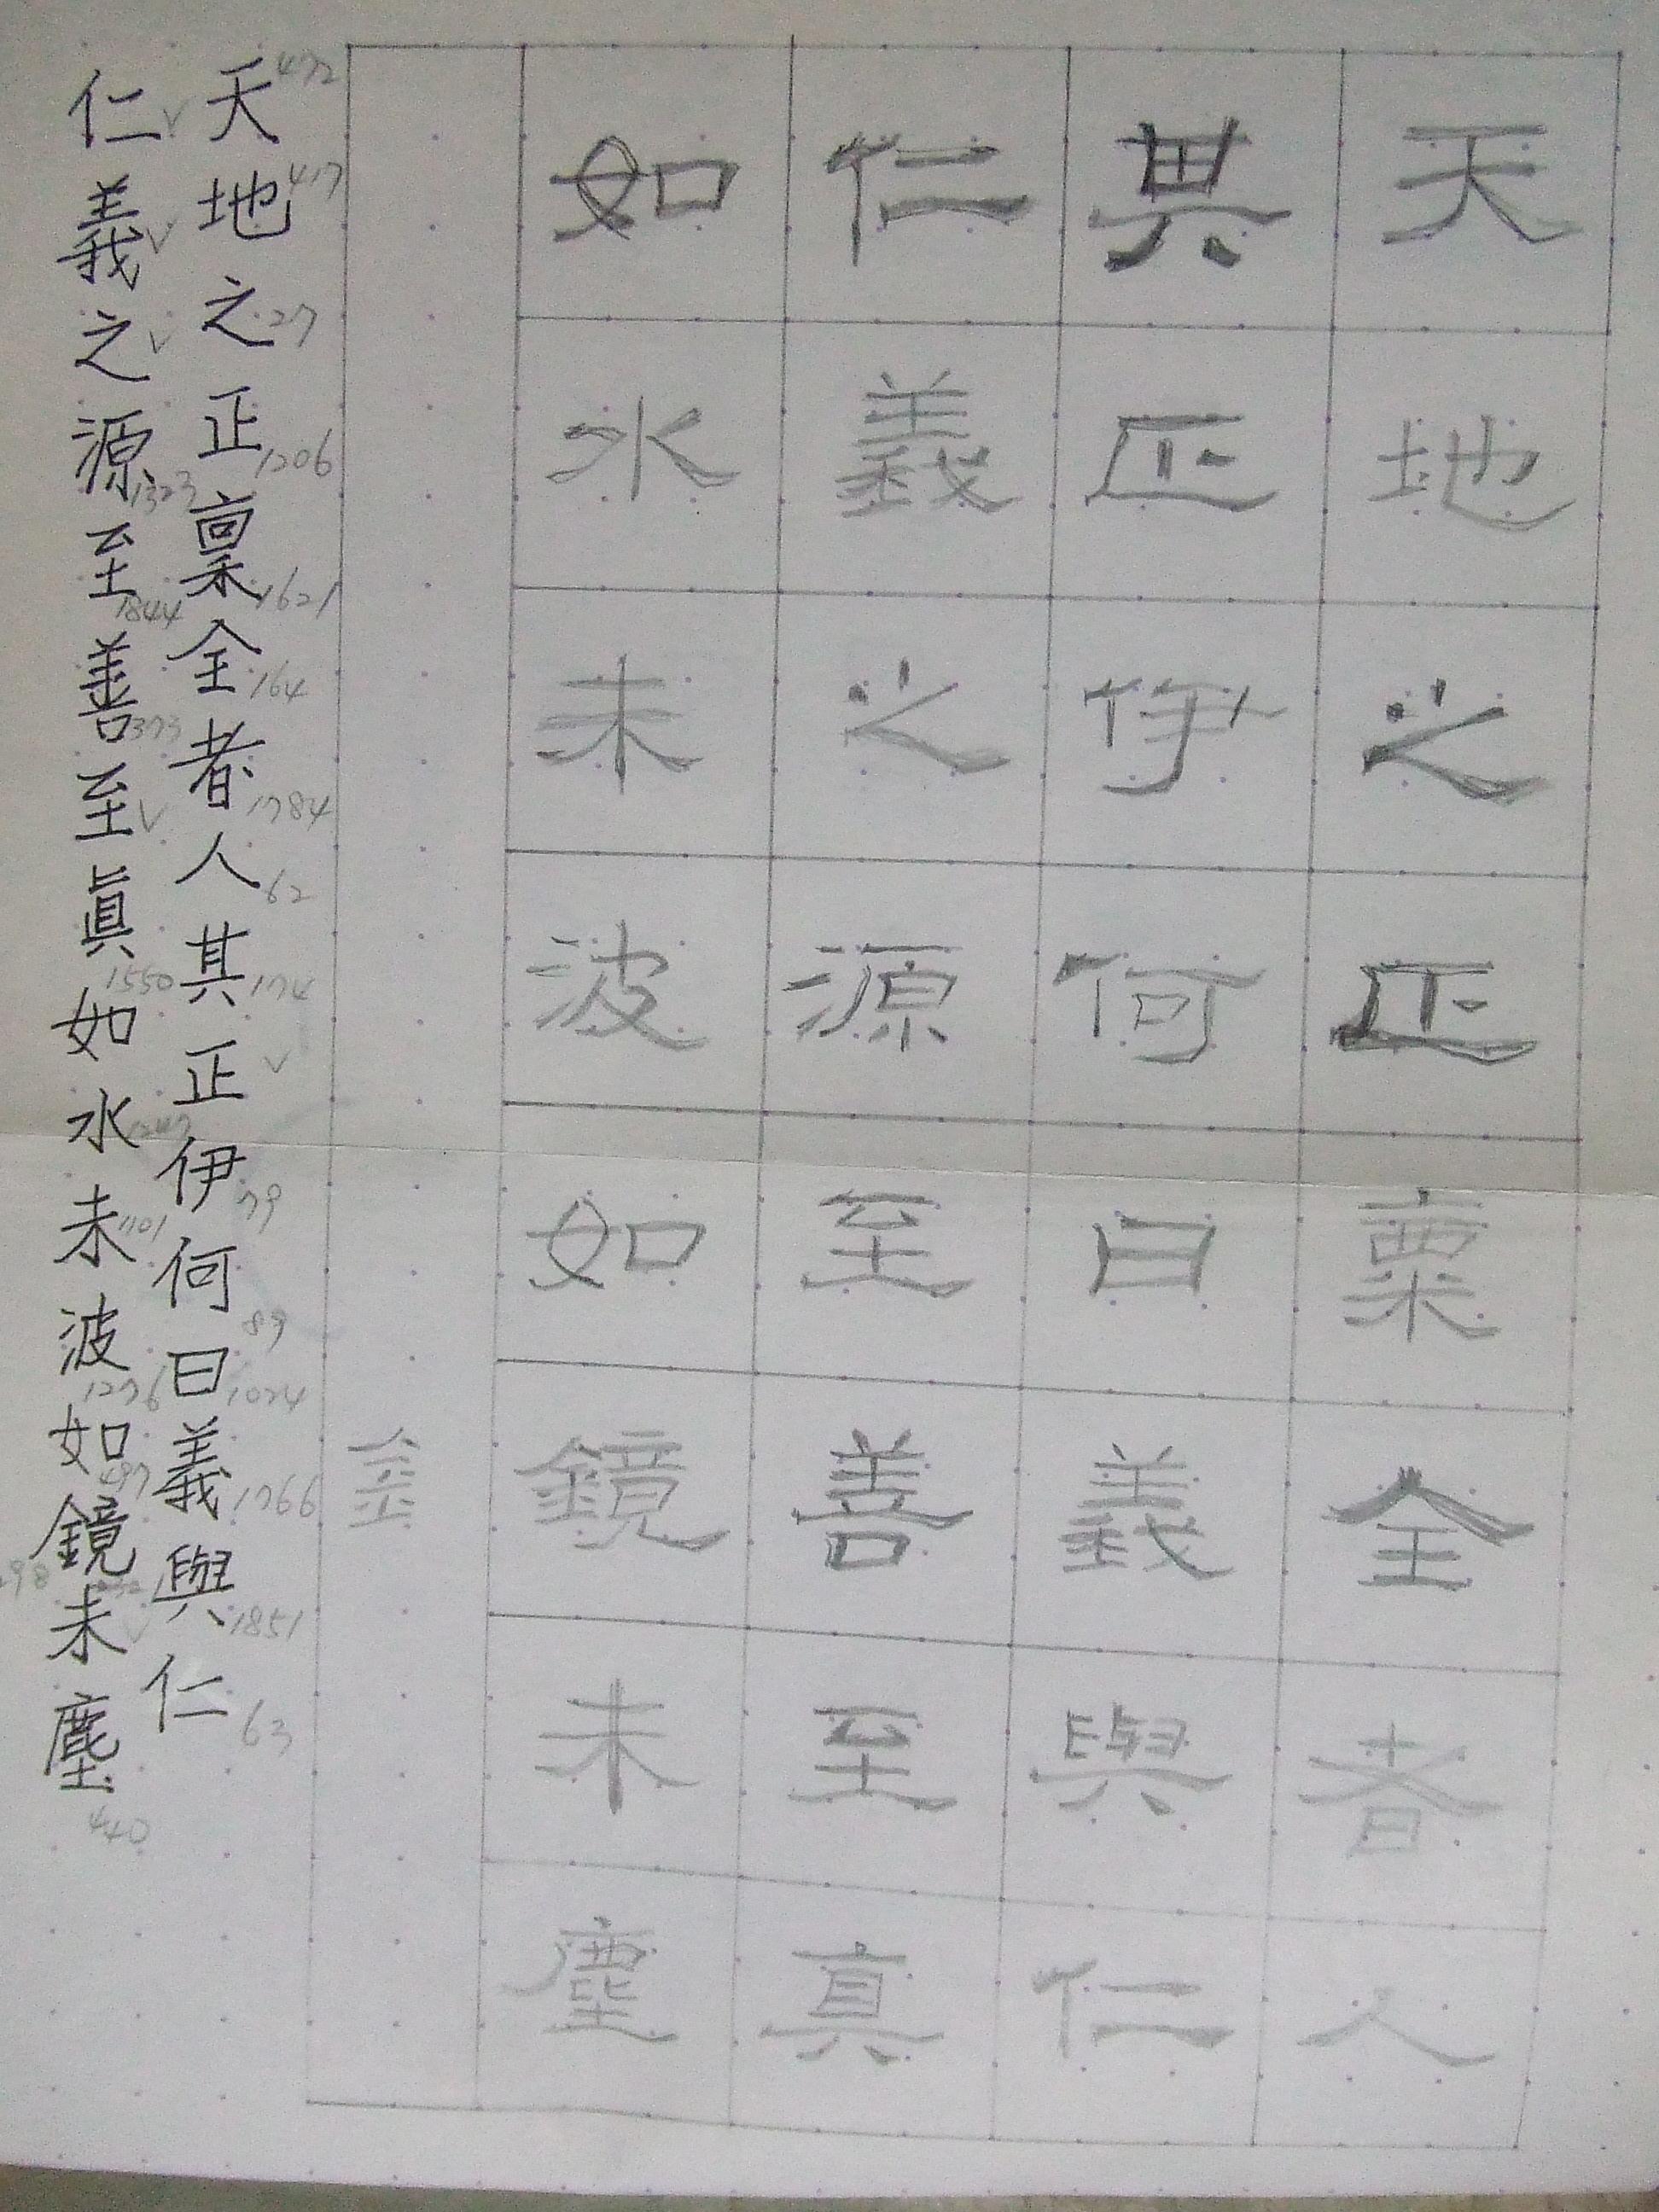 天地之正稟全者人
其正伊何曰義與仁
仁義之源至善至真
如水未波如鏡未塵
金
天地之正稟全者人其正伊何曰義與仁
472 417 27 1206 1621 164 1784 62 174 79 89 1024 1766 1851 63
仁義之源至善至眞如水未波如鏡未塵
1323 1844 373 1550 1247 1101 1276 497 440